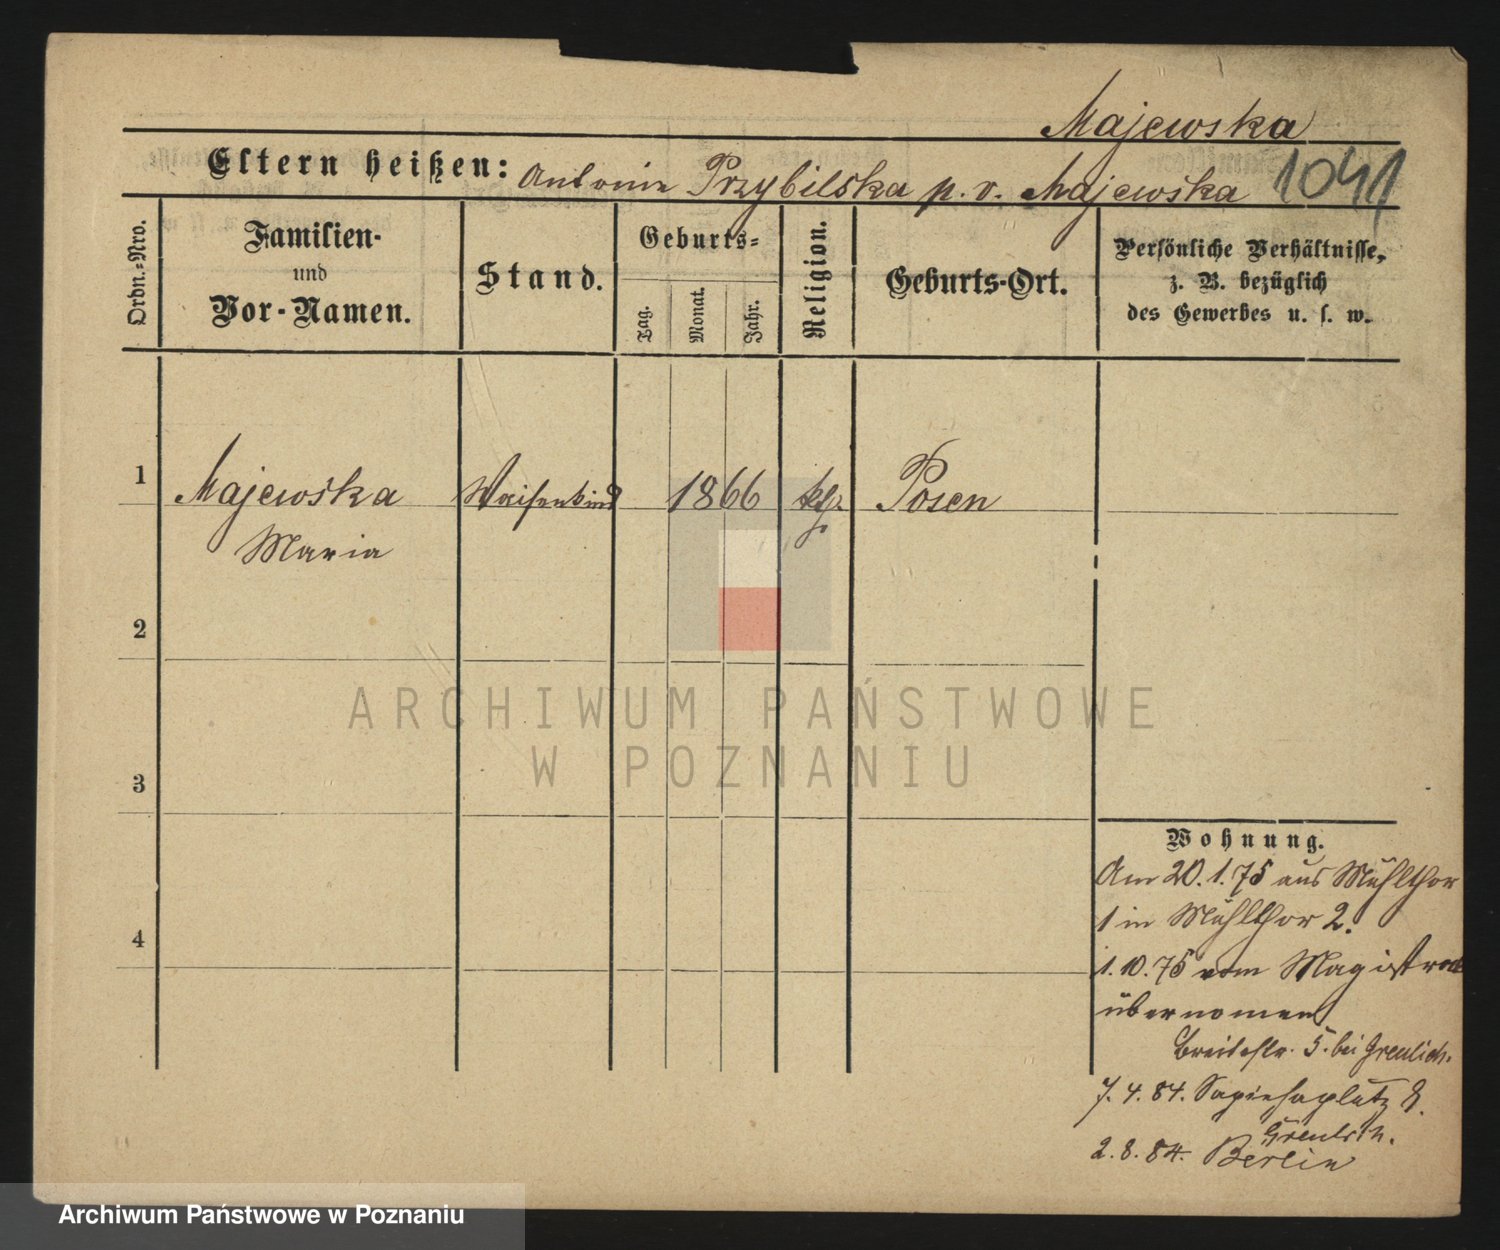 Majewska
Eltern heißen: Antonie Przybilska p. v. Majewska 1041
Ordn.-Nro.
Familien-
und
Vor-Namen.
Stand.
Geburts-
Tag.
Monat.
Jahr.
Religion.
Geburts-Ort.
Persönliche Verhältnisse,
z. B. bezüglich
des Gewerbes u. s. w.
1 Majewska Waisenkind 1866 kth. Posen
Maria
2
ARCHIWUM PAŃSTWOWE
W POZNANIU
3
4
Wohnung.
Am 20.1.75 aus Mühlthor
1 in Mühlthor 2.
1.10.75 vom Magistrat
übernomen
Breitestr. 5. bei Greulich.
7.4.84. Sapiehaplatz 8.
Greulich.
2.8.84. Berlin
Archiwum Państwowe w Poznaniu